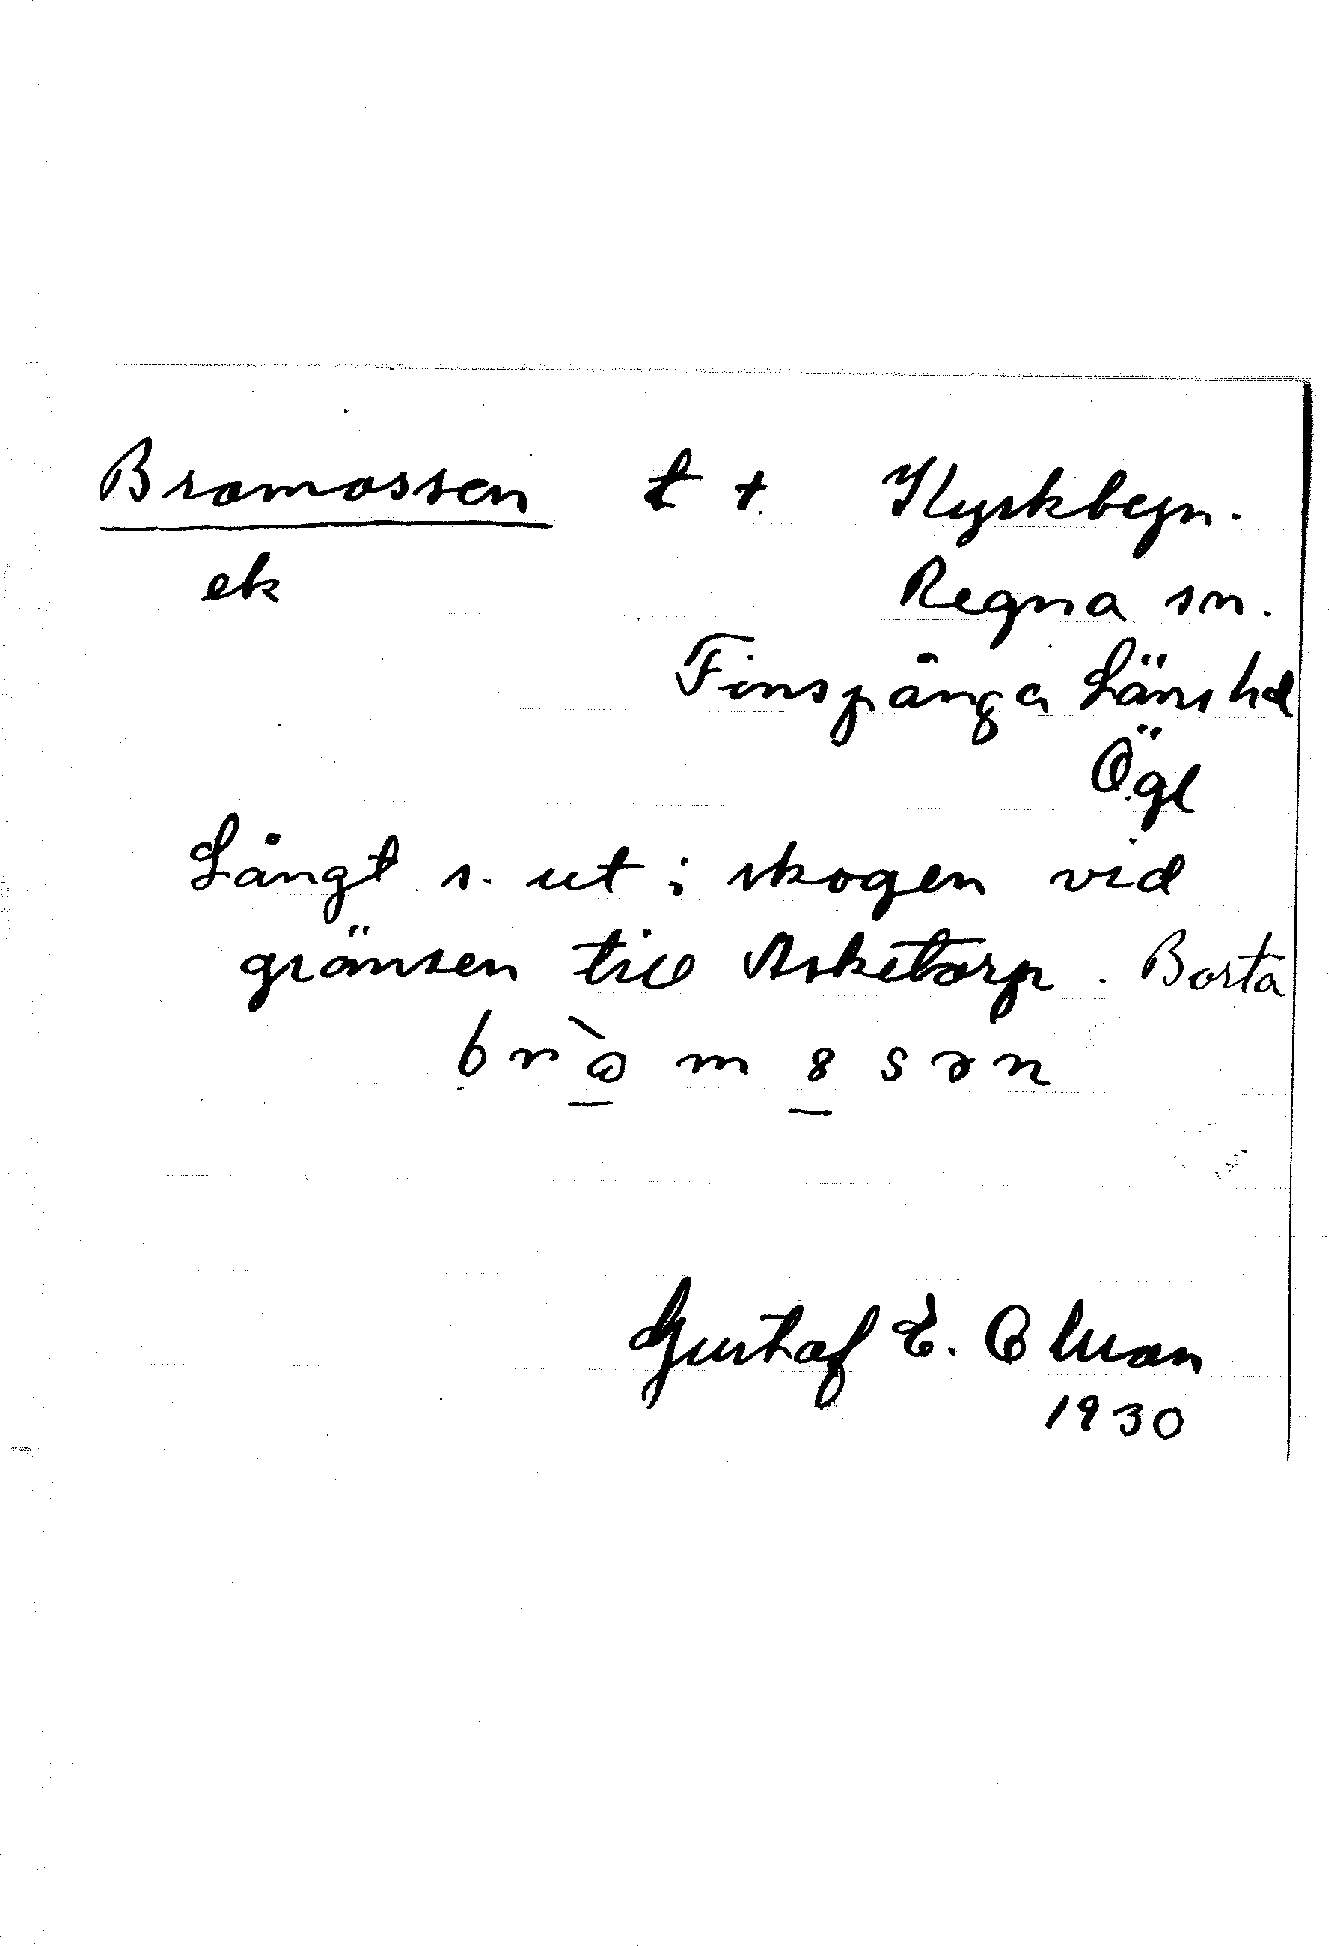 Bromossen t + Kyrkbyn.
ek
Regna sn.
Finspånga Länshd
Ögl
Långt s. ut i skogen vid
gränsen till Asketorp. Borta
Gustaf E.
1930